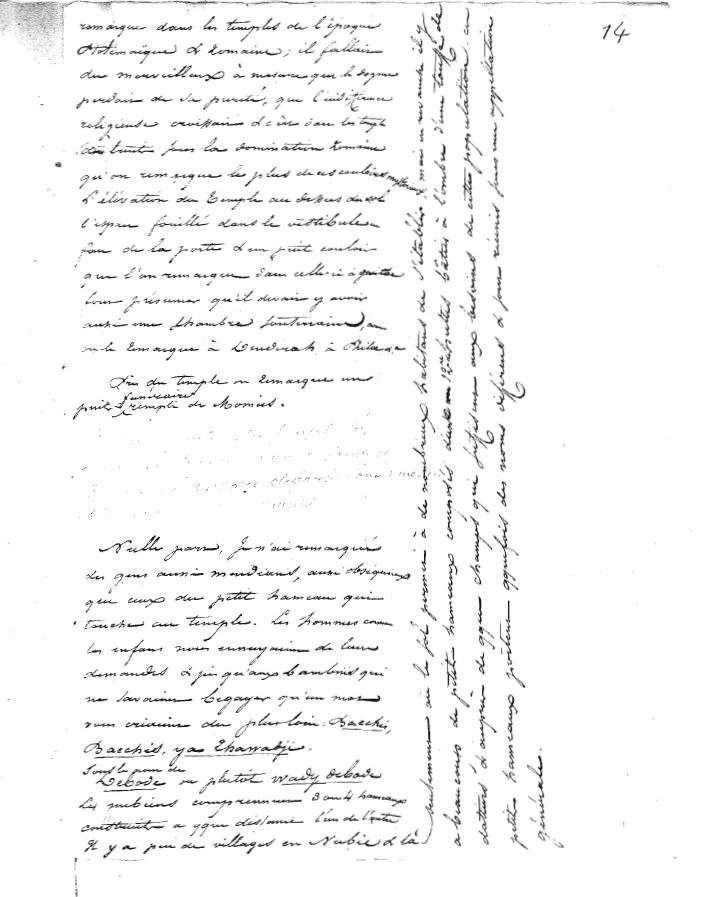 14
remarque dans les temples de l'époque
Ptolémaïque & Romaine; il fallait
du merveilleux à mesure que le dogme
perdait de sa pureté, que l'indifférence
religieuse croissait & c'est dans les temples
construits sous la domination Romaine
qu'on remarque le plus de ces couloirs mystérieux
L'élévation du Temple au dessus du sol
l'espace fouillé dans le vestibule en
face de la porte & un petit couloir
que l'on remarque dans celle-ci à gauche
font présumer qu'il devait y avoir
aussi une chambre souterraine, comme
on le remarque à Denderah, à Philae &a
Près du temple on remarque un
puits funéraire rempli de Momies.
Nulle part, je n'ai remarqué
des gens aussi mendians, aussi obséquieux
que ceux du petit hameau qui
touche au temple. Les hommes comme
les enfans nous ennuyaient de leurs
demandes & jusqu'aux bambins qui
ne savaient begayer qu'un mot
nous criaient du plus loin: Bacchis,
Bacchis, ya Khawadji.
Sous le nom de
Debode ou plutôt wady debode
Les nubiens comprennent 3 ou 4 hameaux
construits a qque distance l'un de l'autre
Il y a peu de villages en Nubie & là
seulement où le sol permet à de nombreux habitans de s'établir; mais en revanche il y
a beaucoup de petits hameaux composés de 12 huttes bâties à l'ombre d'une touffe de
dattiers & auprès de qques champs qui suffisent aux besoins de cette population. ces
petits hameaux portent qquefois des noms différens & sont réunis sous une appellation
générale.